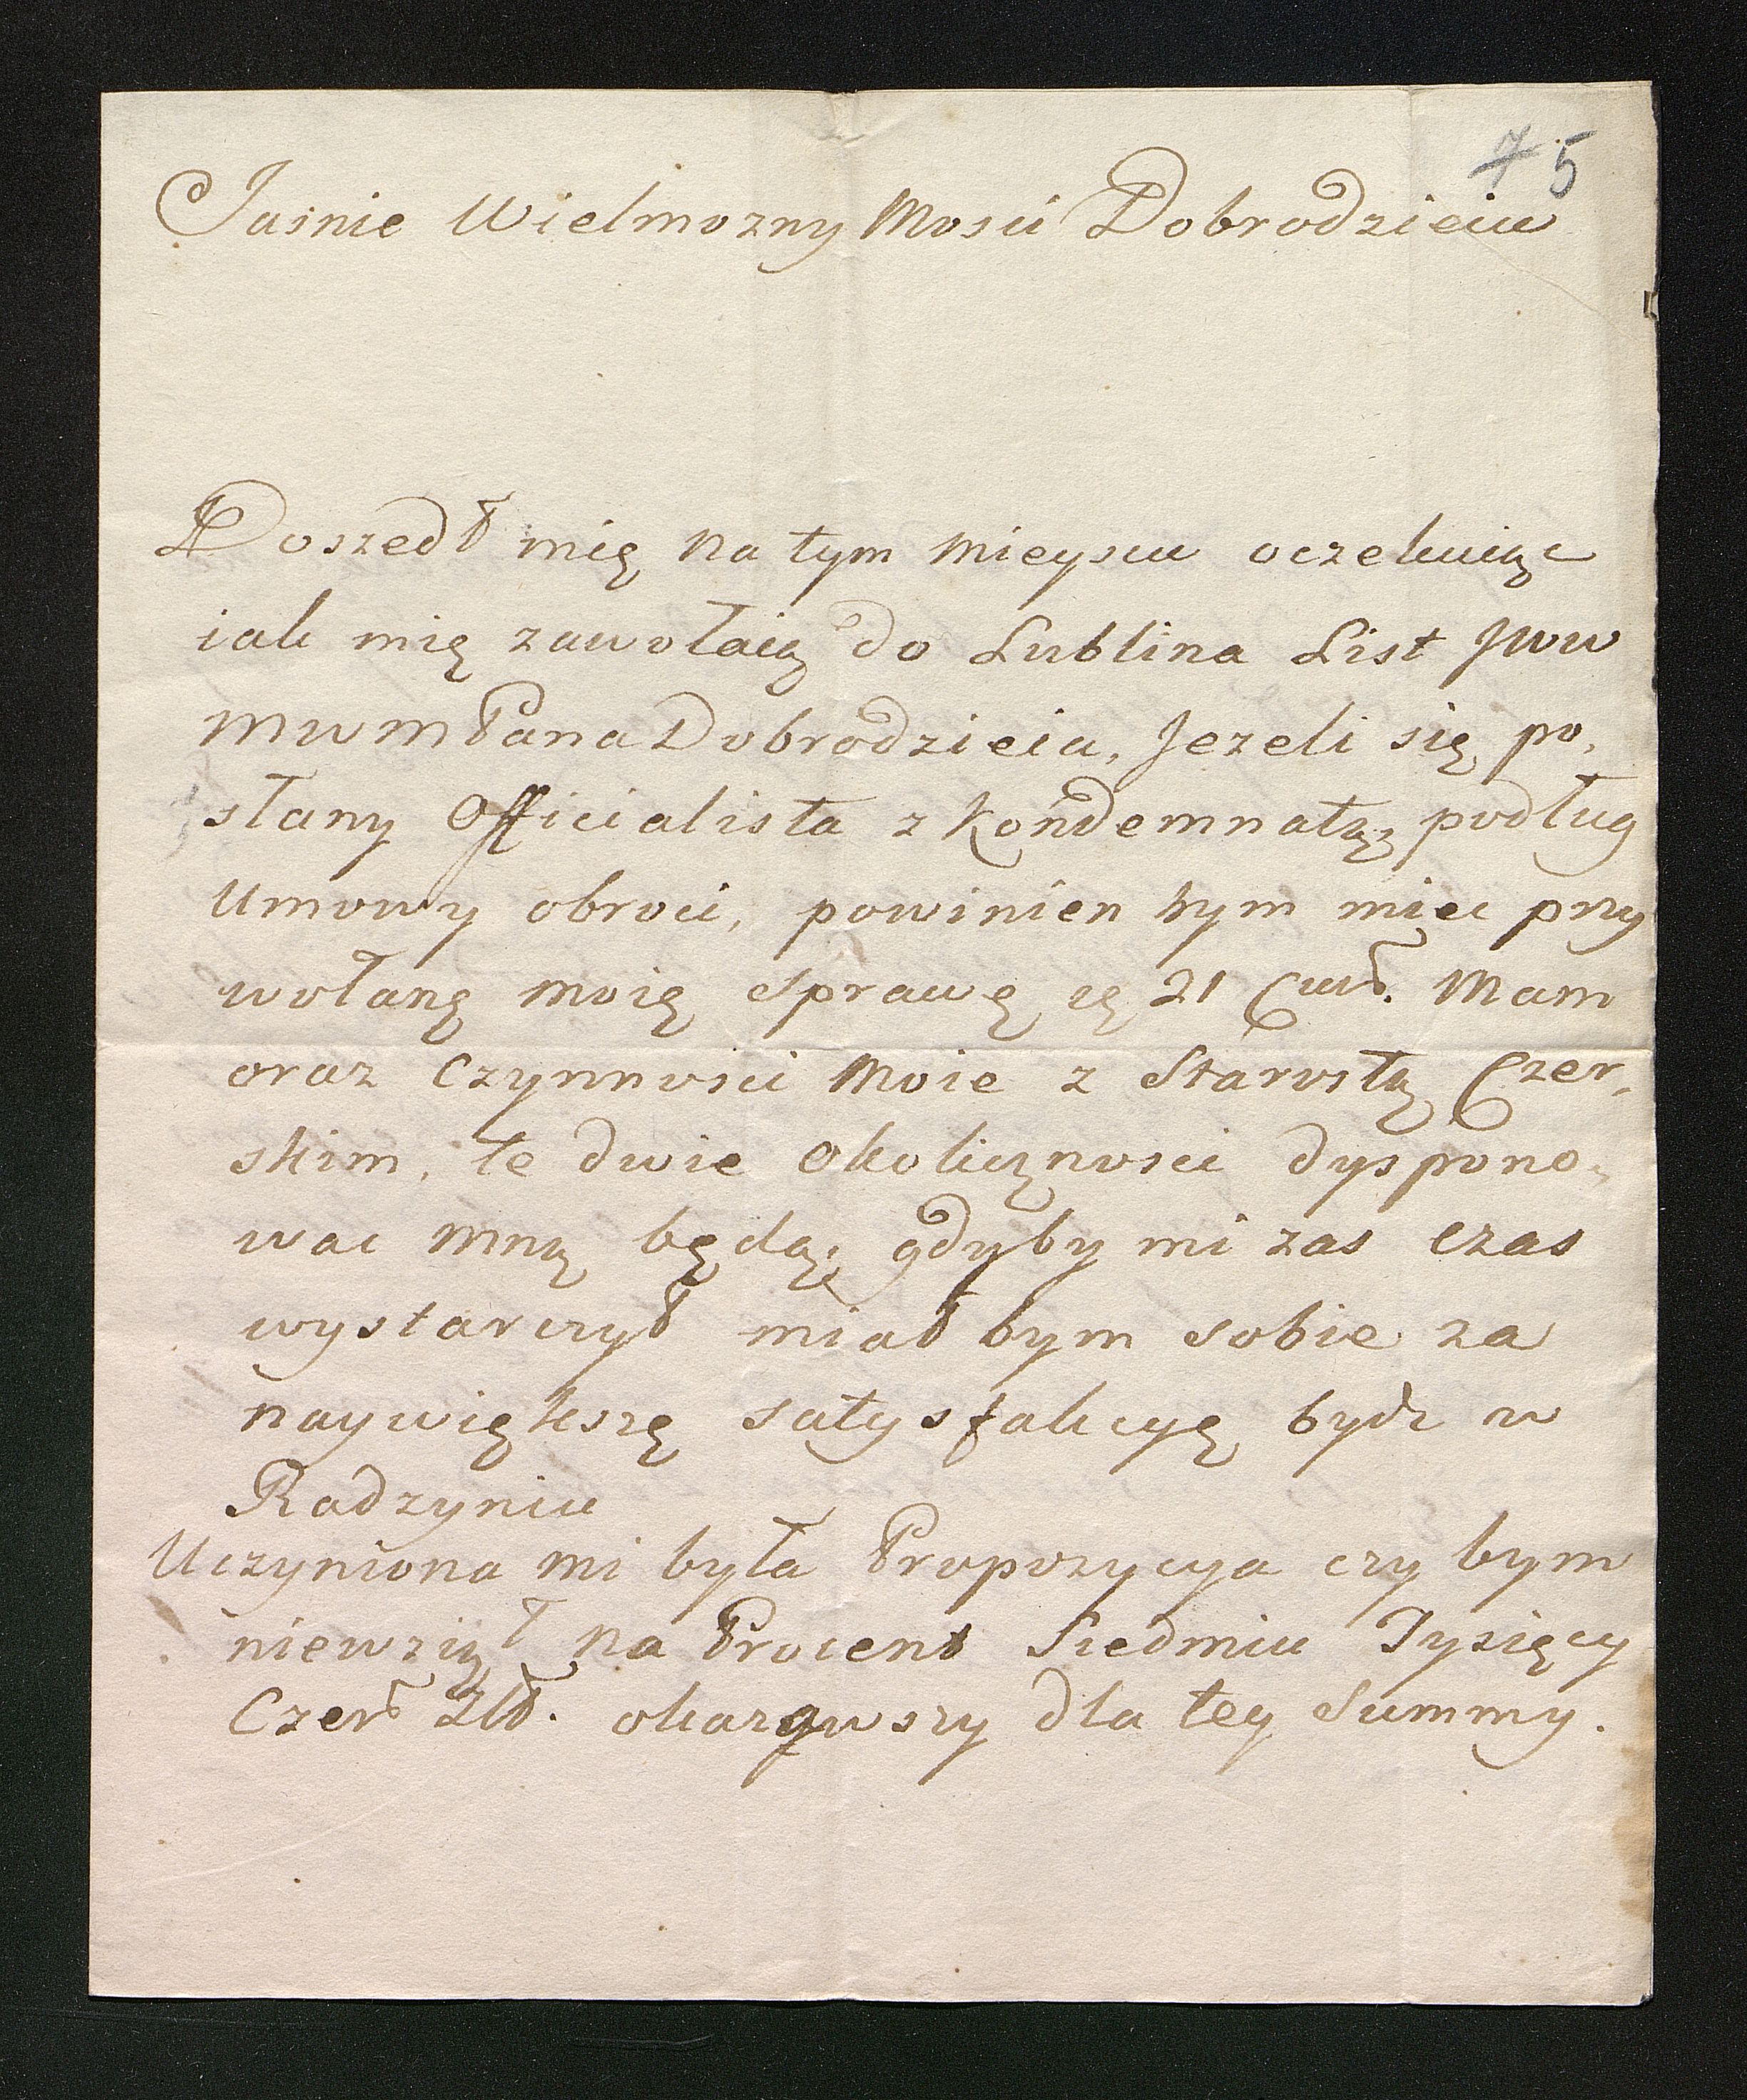 75
Jasnie Wielmozny Mosci Dobrodzieiu
Doszedł mię na tym mieyscu oczekuiąc
iak mię zawołaią do Lublina List JWW
MWM Pana Dobrodzieia, Jezeli się po,
słany Officialista z Kondemnatą podług
Umowy obroci, powinien bym miec przy
wołaną moię Sprawę 21 Cur̃. Mam
oraz Czynnosci Moie z Starostą Czer,
skim, te dwie Okolicznosci dyspono,
wac mną będą, gdyby mi zas czas
wystarczył miał bym sobie za
naywiększę satysfakcyę bydz w
Radzyniu
Uczyniona mi była Propozycya czy bym
niewziął na Procent Siedmiu Tysięcy
Czer Złł. okazawszy dla tey Summy.